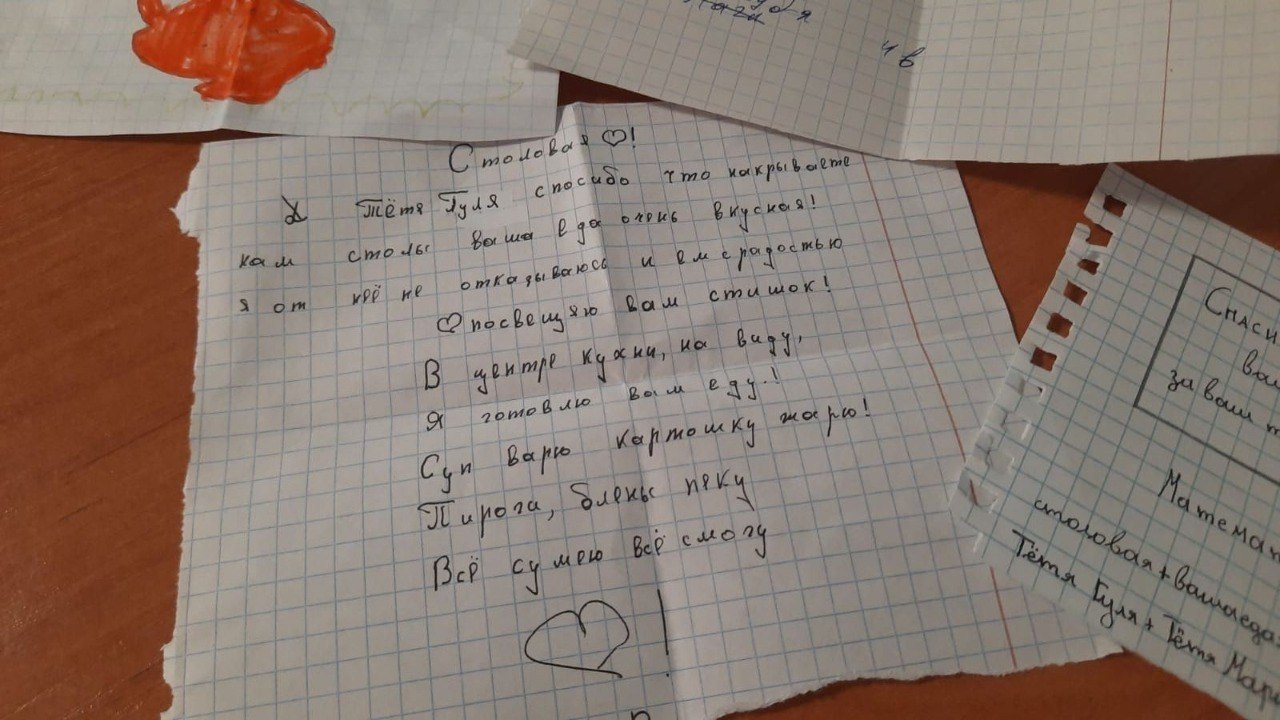 4 в
Столовая ♡!
Тётя Гуля спосибо что накрываете
нам столы ваша еда очень вкусная!
я от неё не отказываюсь и ем с радостью
♡ посвещяю вам стишок!
В центре кухни, на виду,
Я готовлю вам еду.!
Суп варю картошку жарю!
Пирога, блены пеку
Всё сумею всё смогу
♡!
Спаси
ваш
за ваш т
Математ
столовая + ваша еда
Тётя Гуля + Тётя Мари